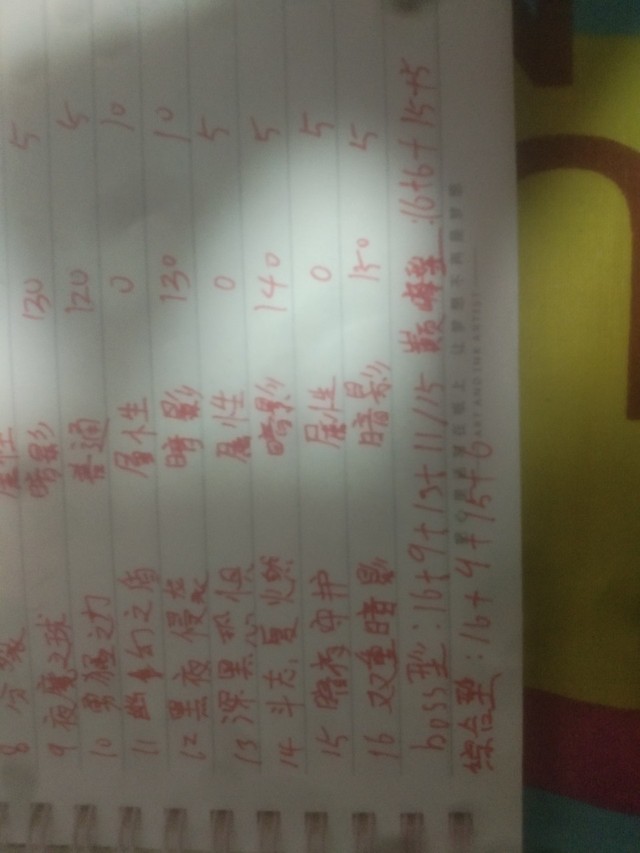 8 分裂 属性
9 夜魔之球 暗影 130 5
10 勇猛之力 普通 120 5
11 幽幻之盾 属性 0 10
12 黑夜侵袭 暗影 130 10
13 深黑 属性 0 5
14 斗志 燃 暗影 140 5
15 暗 守护 属性 0 5
16 双重暗影 暗影 150 5
boss型:16+9+13+11/15 巅峰型:16+6+15+5
综合型:16+9+15+6